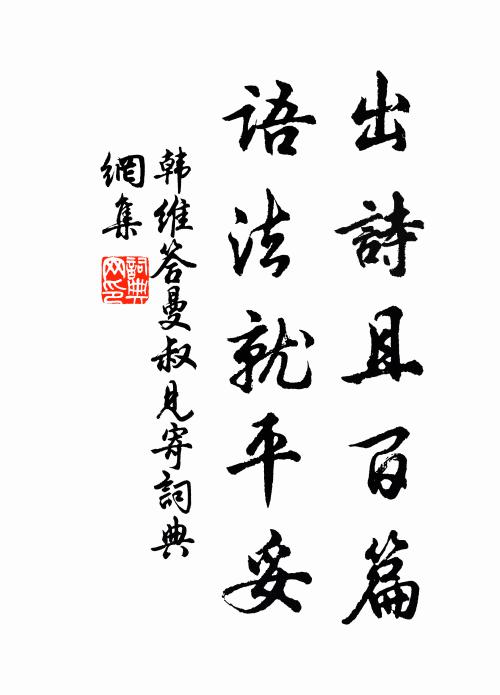 出詩且百篇
語法就平妥
韩维答曼叔见寄詞典
網集
詞典網印